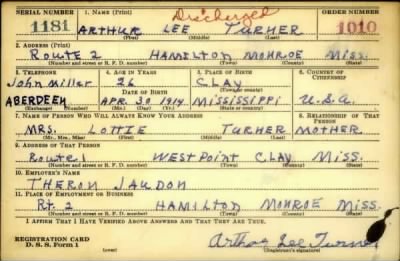 SERIAL NUMBER 1. NAME (Print) Discharged ORDER NUMBER
1181 ARTHUR LEE TURNER 1010
(First) (Middle) (Last)
2. ADDRESS (Print)
Route 2 HAMILTON MONROE MISS.
(Number and street or R. F. D. number) (Town) (County) (State)
3. TELEPHONE 4. AGE IN YEARS 5. PLACE OF BIRTH 6. COUNTRY OF CITIZENSHIP
John Miller 26 CLAY
DATE OF BIRTH (Town or county)
ABERDEEN APR. 30 1914 MISSISSIPPI U.S.A.
(Exchange) (Number) (Mo.) (Day) (Yr.) (State or country)
7. NAME OF PERSON WHO WILL ALWAYS KNOW YOUR ADDRESS 8. RELATIONSHIP OF THAT PERSON
MRS. LOTTIE TURNER MOTHER
(Mr., Mrs., Miss) (First) (Middle) (Last)
9. ADDRESS OF THAT PERSON
Route 1 WEST POINT CLAY MISS.
(Number and street or R. F. D. number) (Town) (County) (State)
10. EMPLOYER'S NAME
THERON JAUDON
11. PLACE OF EMPLOYMENT OR BUSINESS
Rt. 2 HAMILTON MONROE MISS.
(Number and street or R. F. D. number) (Town) (County) (State)
I AFFIRM THAT I HAVE VERIFIED ABOVE ANSWERS AND THAT THEY ARE TRUE.
REGISTRATION CARD
D. S. S. Form 1 (over) Arthur Lee Turner
(Registrant's signature)